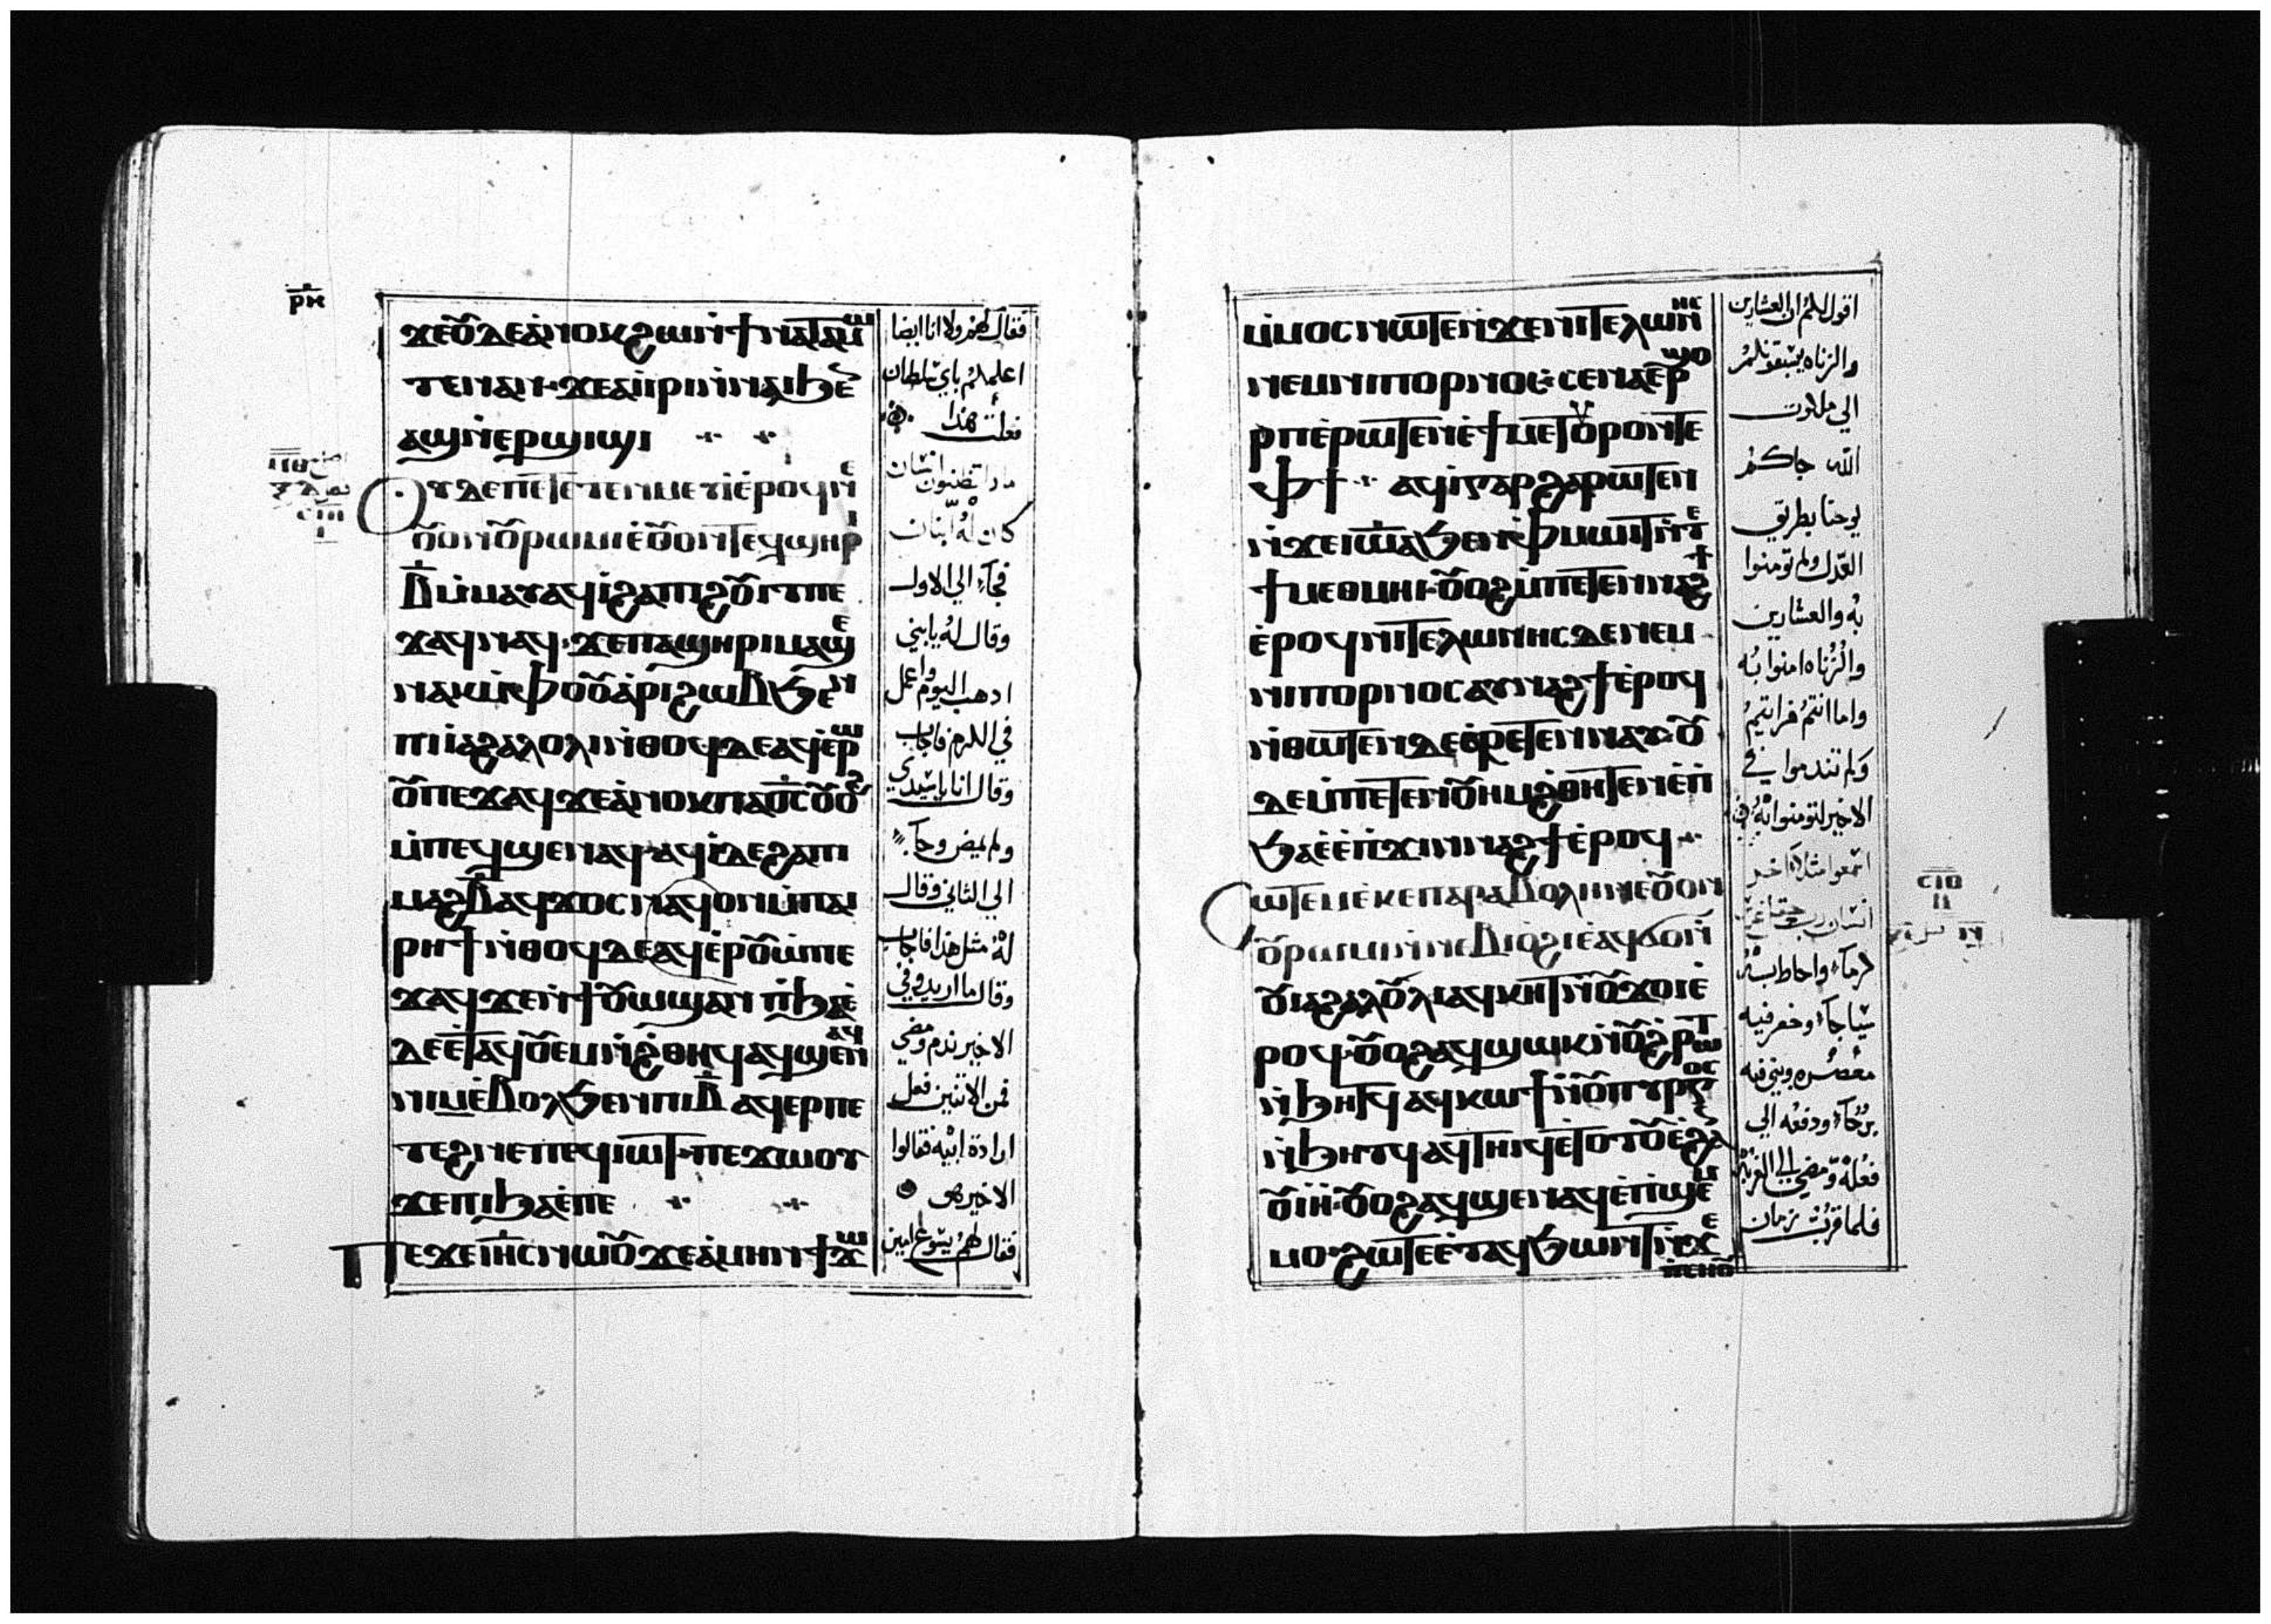 ⲣⲕ
ϫⲉⲟⲩⲇⲉⲁⲛⲟⲕϩⲱⲛϯⲛⲁⲧⲁⲙⲱ
ⲧⲉⲛⲁⲛ· ϫⲉⲁⲓⲓⲣⲓⲛⲛⲁⲓϧⲉⲛ
ⲁϣⲛⲉⲣϣⲓϣⲓ
ⲟⲩⲇⲉⲡⲉⲧⲉⲧⲉⲛⲙⲉⲩⲓⲉⲣⲟϥⲛⲉ
ⲟⲩⲟⲛⲟⲩⲣⲱⲙⲓⲉⲟⲩⲟⲛⲧⲉϥϣⲏⲣⲓ
ⲃ̅ⲙⲙⲁⲩⲁϥⲓϩⲁⲡⲓϩⲟⲩⲓⲧⲡⲉ
ϫⲁϥⲛⲁϥ· ϫⲉⲡⲁϣⲏⲣⲓⲙⲁϣⲉ
ⲛⲁⲕⲙⲫⲟⲟⲩⲁⲣⲓϩⲱⲃϧⲉⲛ
ⲡⲓⲓⲁϩⲁⲗⲟⲗⲓⲛⲑⲟϥⲇⲉⲁϥⲉⲣⲱ
ⲟⲩⲡⲉϫⲁϥϫⲉⲁⲛⲟⲕⲡⲁϭⲥⲟⲩⲟϩ
ⲙⲡⲉϥϣⲉⲛⲁϥ·ⲁϥⲓⲇⲉϩⲁⲡⲓ
ⲙⲁϩⲃ̅ⲁϥϫⲟⲥⲛⲁϥⲟⲛⲙⲡⲁⲓ
ⲣⲏϯⲛⲑⲟϥⲇⲉⲁϥⲉⲣⲟⲩⲱⲡⲉ
ϫⲁϥϫⲉⲛϯⲟⲩⲱϣⲁⲛ ⲉⲡϧⲁⲉ
ⲇⲉⲉⲧⲁϥⲟⲩⲉⲙⲛϩⲑⲏϥⲁϥϣⲉⲛⲁϥ
ⲛⲓⲙⲉⲃⲟⲗϧⲉⲛⲡⲓⲃ̅ ⲁϥⲉⲣⲡⲉ
ⲧⲉϩⲛⲉⲡⲉϥⲓⲱⲧ·ⲡⲉϫⲱⲟⲩ
ϫⲉⲡⲓϧⲁⲉⲡⲉ
ⲡⲉϫⲉⲓⲏⲥⲛⲱⲟⲩϫⲉⲁⲙⲏⲛϯϫⲱ
فقال لهم ولا انا ايضا
اعلمكم باي سلطان
فعلت هذا
ماذا تظنون انسان
كان له ابنان
فجآء الي الاول
وقال له يا بني
ادهب اليوم واعمل
في الكرم فاجاب
وقال انا يا سيدي
ولم يمض وجآء
الي الثاني وقال
له مثل هذا فاجاب
وقال ما اريد وفي
الاخير ندم ومضي
فمن الاتنين فعل
ارادة ابيه فقالوا
الاخير هو
فقال لهم يسوع امين
ⲙⲙⲟⲥⲛⲱⲧⲉⲛϫⲉⲛⲓⲧⲉⲗⲱⲛⲏⲥ
ⲛⲉⲙⲛⲓⲡⲟⲣⲛⲟⲥ· ⲥⲉⲛⲁⲉⲣϣⲟ
ⲣⲡⲉⲣⲱⲧⲉⲛⲉϯⲙⲉⲧⲟⲩⲣⲟⲛⲧⲉ
ⲫϯ ⲁϥⲓⲅⲁⲣϩⲁⲣⲱⲧⲉⲛ
ⲛϫⲉⲓⲱⲁϧⲉⲛⲫⲙⲱⲓⲧⲛⲧⲉ
ϯⲙⲉⲑⲙⲏⲓ·ⲟⲩⲟϩⲙⲡⲉⲧⲉⲛⲛⲁϩϯ
ⲉⲣⲟϥⲛⲓⲧⲉⲗⲱⲛⲏⲥⲇⲉⲛⲉⲙ
ⲛⲓⲡⲟⲣⲛⲟⲥⲁⲩⲛⲁϩϯⲉⲣⲟϥ
ⲛⲑⲱⲧⲉⲛⲇⲉⲉⲣⲉⲧⲉⲛⲛⲁⲩ·ⲟⲩ
ⲇⲉⲙⲡⲉⲧⲉⲛⲟⲩⲏⲙϩⲑⲏⲧⲉⲛⲉⲡ
ϧⲁⲉⲉⲡϫⲓⲛⲛⲁϩϯⲉⲣⲟϥ
ⲥⲱⲧⲉⲙⲉⲕⲉⲡⲁⲣⲁⲃⲟⲗⲏⲛⲉⲟⲩⲟⲛ
ⲟⲩⲣⲱⲙⲓⲛⲛⲉⲃⲓⲟϩⲓⲉⲁϥϭⲟⲛ
ⲟⲩⲓⲁϩⲁⲗⲟⲗⲓⲁϥⲕⲏⲧⲛⲟⲩϫⲟⲓⲉ
ⲣⲟϥ·ⲟⲩⲟϩⲁϥϣⲱⲕⲛⲟⲩϩⲣⲱⲧ
ⲛϧⲏⲧϥⲁϥⲕⲱϯⲛⲟⲩⲡⲩⲣⲅⲟⲥ
ⲛϧⲏⲧϥⲁϥⲧⲏⲓϥⲉⲧⲟⲧⲟⲩⲉϩⲁⲛ
ⲟⲩⲓⲏ·ⲟⲩⲟϩⲁϥϣⲉⲛⲁϥⲉⲡϣⲉⲙ
ⲙⲟ·ϩⲱⲧⲉⲉⲧⲁϥϧⲱⲛⲧⲛϫⲉ
ⲡⲥⲏⲟⲩ
اقول لكم ان العشارين
والزناه يسبقونكم
الي ملكوت
الله جاكم
يوحنا بطريق
العدل ولم تومنوا
به والعشارين
والزناه امنوا به
واما انتم فرايتم
ولم تندموا في
الاخير لتومنوا به
اسمعوا مثلا اخر
انسان رب حقل غرس
كرمآء واحاط به
سياجآء وحفر فيه
معصره وبني فيه
برجآء ودفعه الي
فعله ومضي الي الغربه
فلما قرب زمان
ⲥⲓⲑ